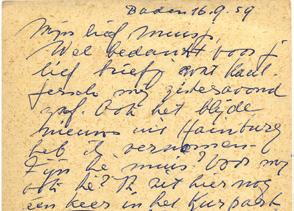 Baden 16.9.59
Mijn lief muisje,
Wel bedankt voor je
lief briefje
zaterdagavond
Ook het blijde
nieuws uit Hamburg
heb ik vernomen.
Fijn hè, muis? Voor mij
ook hè? Ik zit hier nog
een keer in het Kurpark